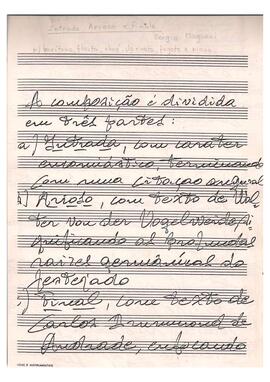 Intrada, Arioso e Finale
Sergio Magnani
p/ barítono, flauta, oboé, clarineta, fagote e piano
A composição é dividida
em três partes:
a) Intrada, com caráter
encomiástico, terminando
com uma citação
b) Arioso, com texto de Wal-
ter von der Vogelweide, si-
gnificando as profundas
raízes germânicas do
festejado
c) Finale, com texto de
Carlos Drummond de
Andrade, enfocando
VOZ E INSTRUMENTOS